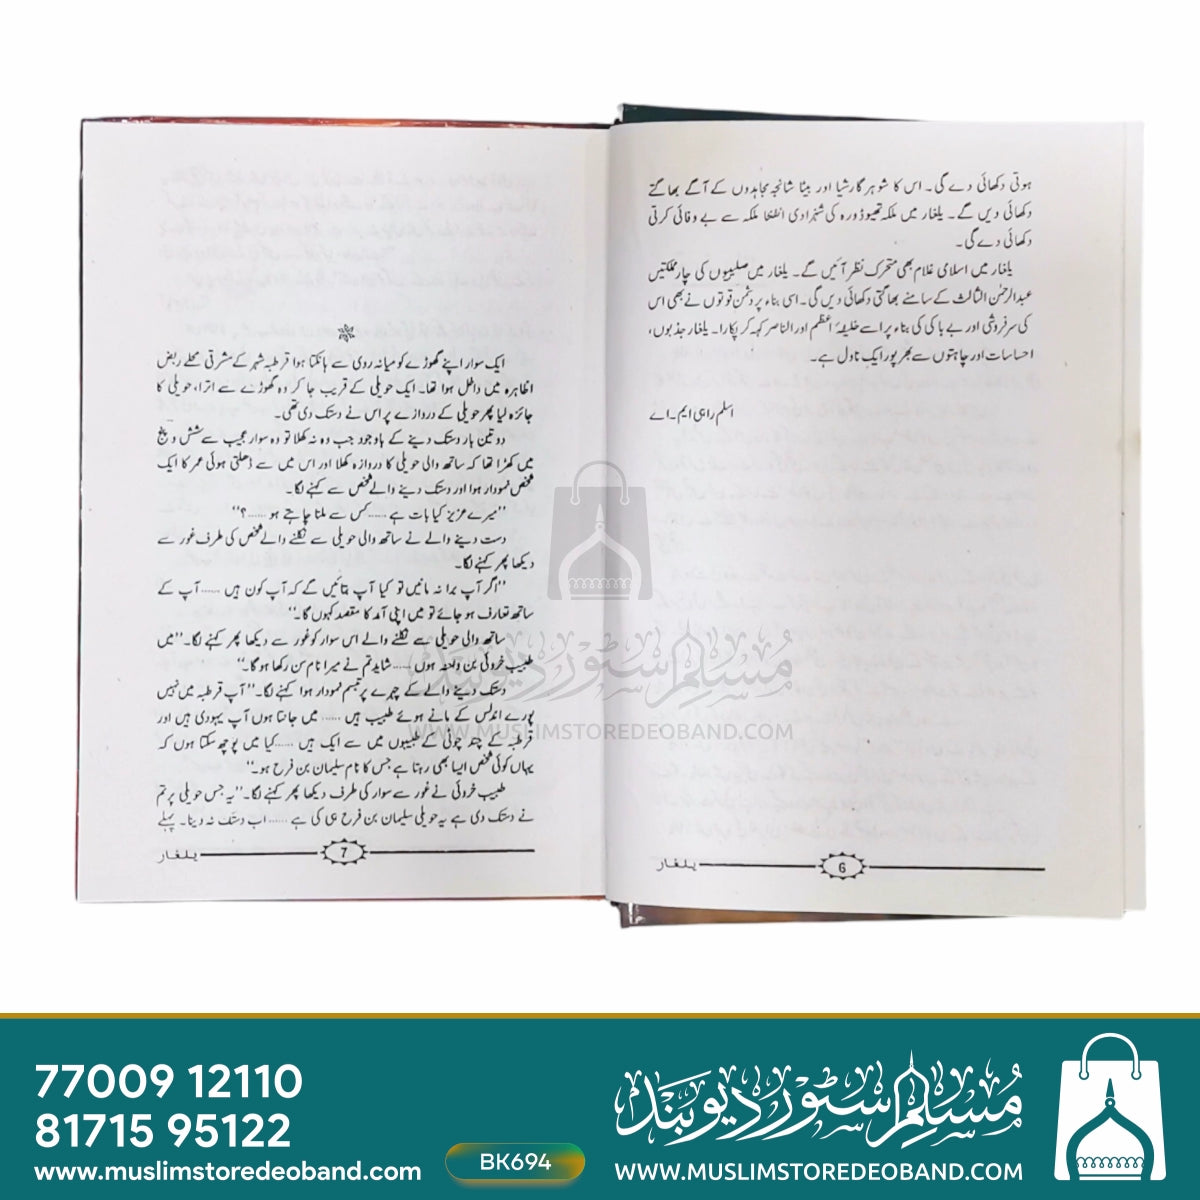 ہوتی دکھائی دے گی۔ اس کا شوہر گارشیا اور بیٹا شانجہ مجاہدوں کے آگے بھاگتے
دکھائی دیں گے۔ یلغار میں ملکہ تھیوڈورہ کی شہزادی انفنجا ملکہ سے بے وفائی کرتی
دکھائی دے گی۔
یلغار میں اسلامی غلام بھی متحرک نظر آئیں گے۔ یلغار میں صلیبیوں کی چار مملکتیں
عبدالرحمٰن الثالث کے سامنے بھاگتی دکھائی دیں گی۔ اسی بناء پر دشمن قوتوں نے بھی اس
کی سرفروشی اور بے باکی کی بناء پر اسے خلیفۂ اعظم اور الناصر کہہ کر پکارا۔ یلغار جذبوں،
احساسات اور چاہتوں سے بھرپور ایک ناول ہے۔
اسلم راہی ایم۔اے
یلغار
6
ایک سوار اپنے گھوڑے کو میانہ روی سے ہانکتا ہوا قرطبہ شہر کے مشرقی محلے ربض
الظاہرہ میں داخل ہوا تھا۔ ایک حویلی کے قریب جا کر وہ گھوڑے سے اترا، حویلی کا
جائزہ لیا پھر حویلی کے دروازے پر اس نے دستک دی تھی۔
دو تین بار دستک دینے کے باوجود جب وہ نہ کھلا تو وہ سوار عجیب سے شش و پنج
میں کھڑا تھا کہ ساتھ والی حویلی کا دروازہ کھلا اور اس میں سے ڈھلتی ہوئی عمر کا ایک
شخص نمودار ہوا اور دستک دینے والے شخص سے کہنے لگا۔
’’میرے عزیز کیا بات ہے ...... کس سے ملنا چاہتے ہو ......؟‘‘
دست دینے والے نے ساتھ والی حویلی سے نکلنے والے شخص کی طرف غور سے
دیکھا پھر کہنے لگا۔
’’اگر آپ برا نہ مانیں تو کیا آپ بتائیں گے کہ آپ کون ہیں ...... آپ کے
ساتھ تعارف ہو جائے تو میں اپنی آمد کا مقصد کہوں گا۔‘‘
ساتھ والی حویلی سے نکلنے والے اس سوار کو غور سے دیکھا پھر کہنے لگا۔ ’’میں
طبیب خروئی بن ہوں ...... شاید تم نے میرا نام سن رکھا ہو گا۔‘‘
دستک دینے والے کے چہرے پر تبسم نمودار ہوا کہنے لگا۔ ’’آپ قرطبہ میں نہیں
پورے اندلس کے مانے ہوئے طبیب ہیں ...... میں جانتا ہوں آپ یہودی ہیں اور
قرطبہ کے چند چوٹی کے طبیبوں میں سے ایک ہیں ...... کیا میں پوچھ سکتا ہوں کہ
یہاں کوئی شخص ایسا بھی رہتا ہے جس کا نام سلیمان بن فرح ہو۔‘‘
طبیب خروئی نے غور سے سوار کی طرف دیکھا پھر کہنے لگا۔ ’’یہ جس حویلی پر تم
نے دستک دی ہے یہ حویلی سلیمان بن فرح ہی کی ہے ...... اب دستک نہ دینا۔ پہلے
یلغار
7
مسلم سٹور دیوبند
WWW.MUSLIMSTOREDEOBAND.COM
77009 12110
81715 95122
www.muslimstoredeoband.com
BK694
مسلم سٹور دیوبند
WWW.MUSLIMSTOREDEOBAND.COM